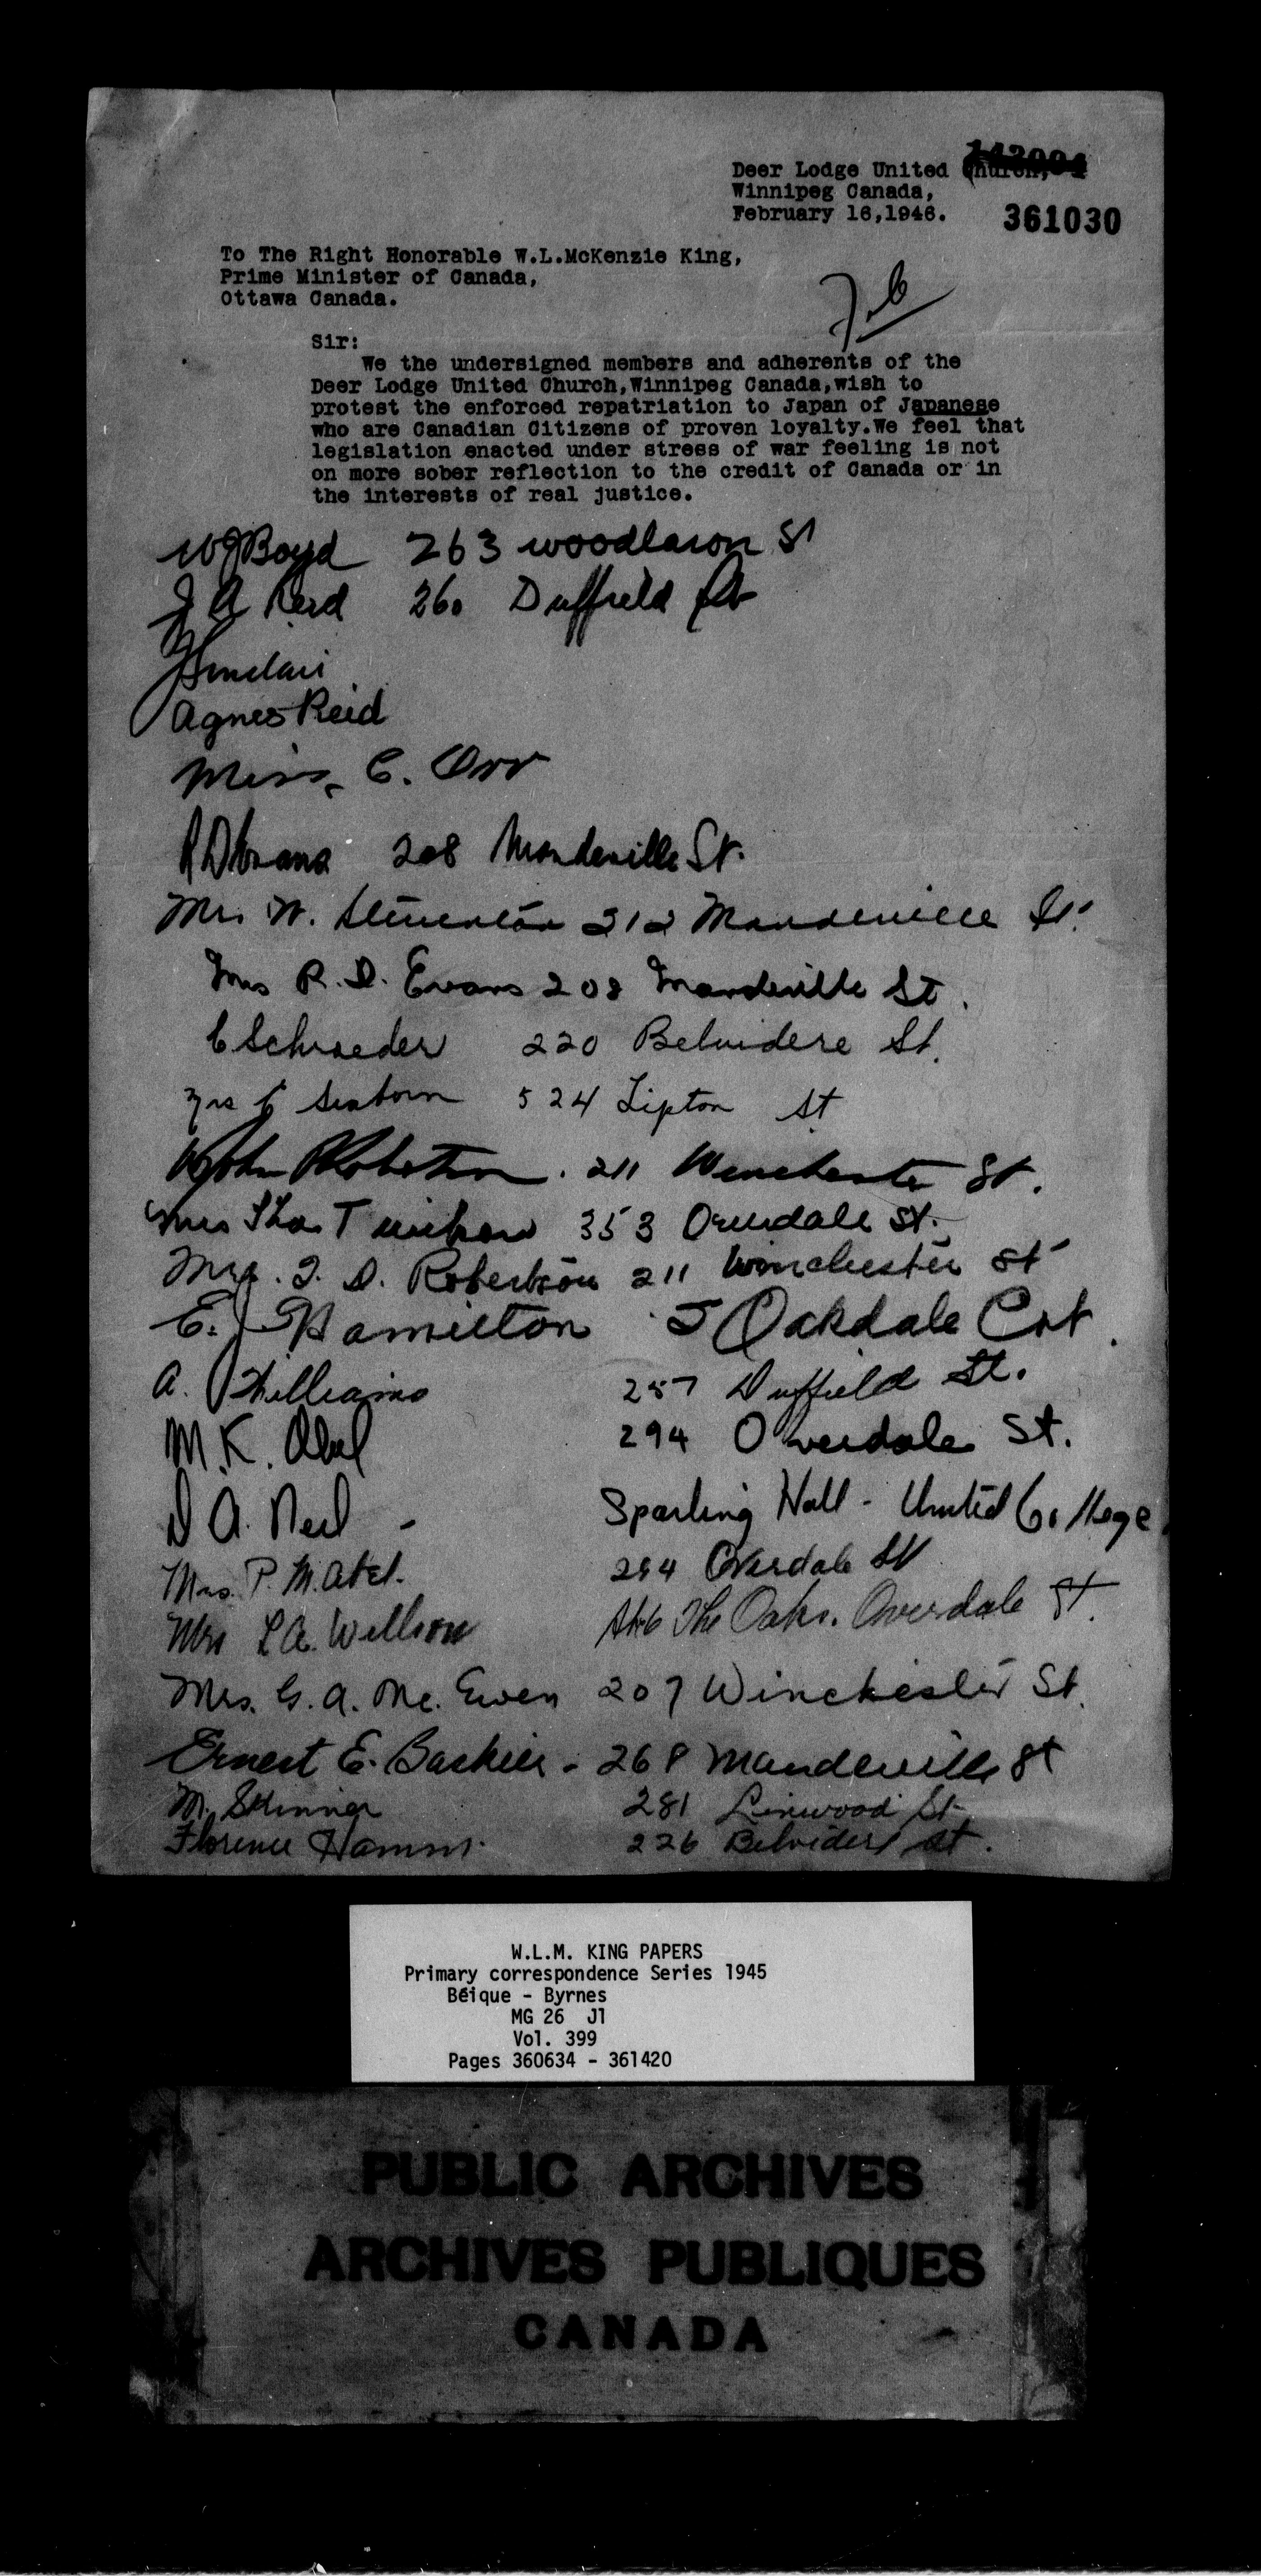 Deer Lodge United Church,
Winnipeg Canada,
February 16,1946.
361030
To The Right Honorable W.L.McKenzie King,
Prime Minister of Canada,
Ottawa Canada.
Sir:
We the undersigned members and adherents of the
Deer Lodge United Church,Winnipeg Canada,wish to
protest the enforced repatriation to Japan of Japanese
who are Canadian Citizens of proven loyalty.We feel that
legislation enacted under stress of war feeling is not
on more sober reflection to the credit of Canada or in
the interests of real justice.
W J Boyd 263 woodlawn St
J A Reid 260 Duffield St
Sinclair
Agnes Reid
Miss C. Orr
R D Evans 208 Mandeville St.
Mrs W. 212 Mandeville St.
Mrs R. D. Evans 208 Mandeville St.
C Schroeder 220 Belvidere St.
Mrs Seaborn 524 Lipton St
John Robertson. 211 Winchester St.
Mrs Thos 353 Overdale St.
Mrs. J. D. Robertson 211 Winchester St
E. J. Hamilton 5 Oakdale Crt.
A. Williams 257 Duffield St.
M. K. Abel 294 Overdale St.
D A. Neil - Sparling Hall - United College.
Mrs. P. M. Abel. 294 Overdale St
Mrs L A. Willson The Oaks. Overdale St.
Mrs. G. A. Mc. Ewen 207 Winchester St.
Ernest E. - 268 Mandeville St
M. Skinner 281 Linwood St
Florence Hamm. 226 Belvidere St.
W.L.M. KING PAPERS
Primary correspondence Series 1945
Béique - Byrnes
MG 26 J1
Vol. 399
Pages 360634 - 361420
PUBLIC ARCHIVES
ARCHIVES PUBLIQUES
CANADA